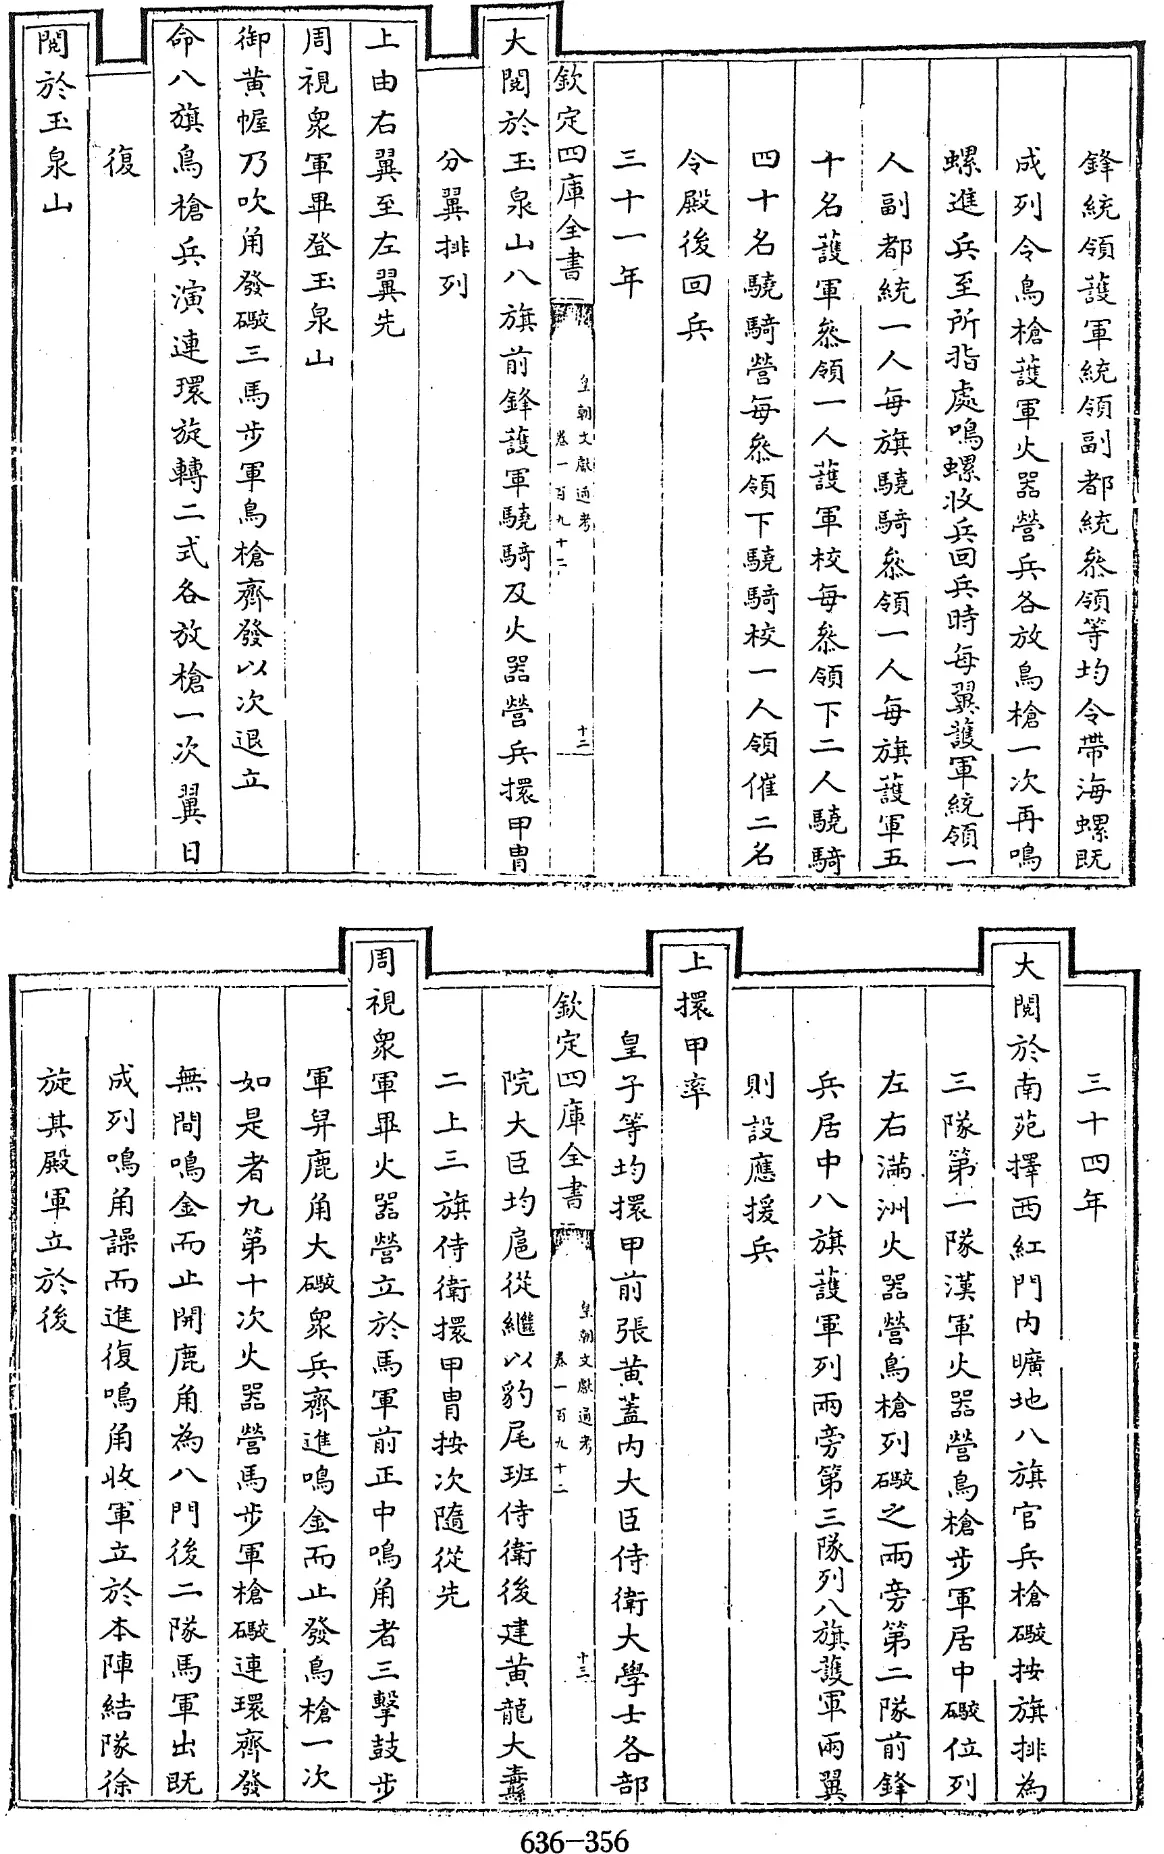 鋒統領護軍統領副都統叅領等均令帶海螺既
成列令鳥槍護軍火器營兵各放鳥槍一次再鳴
螺進兵至所指處鳴螺收兵回兵時每翼護軍統領一
人副都統一人每旗驍騎叅領一人每旗護軍五
十名護軍叅領一人護軍校每叅領下二人驍騎
四十名驍騎營每叅領下驍騎校一人領催二名
令殿後回兵
三十一年
欽定四庫全書
皇朝文獻通考
卷一百九十二
十二
大閱於玉泉山八旗前鋒護軍驍騎及火器營兵擐甲冑
分翼排列
上由右翼至左翼先
周視衆軍畢登玉泉山
御黃幄乃吹角發礮三馬步軍鳥槍齊發以次退立
命八旗鳥槍兵演連環旋轉二式各放槍一次翼日
復
閱於玉泉山
三十四年
大閱於南苑擇西紅門內曠地八旗官兵槍礮按旗排為
三隊第一隊漢軍火器營鳥槍步軍居中礮位列
左右滿洲火器營鳥槍列礮之兩旁第二隊前鋒
兵居中八旗護軍列兩旁第三隊列八旗護軍兩翼
則設應援兵
上擐甲率
皇子等均擐甲前張黃蓋內大臣侍衛大學士各部
欽定四庫全書
皇朝文獻通考
卷一百九十二
十三
院大臣均扈從繼以豹尾班侍衛後建黃龍大纛
二上三旗侍衛擐甲冑按次隨從先
周視衆軍畢火器營立於馬軍前正中鳴角者三擊鼓步
軍舁鹿角大礮衆兵齊進鳴金而止發鳥槍一次
如是者九第十次火器營馬步軍槍礮連環齊發
無間鳴金而止開鹿角為八門後二隊馬軍出既
成列鳴角譟而進復鳴角收軍立於本陣結隊徐
旋其殿軍立於後
636-356